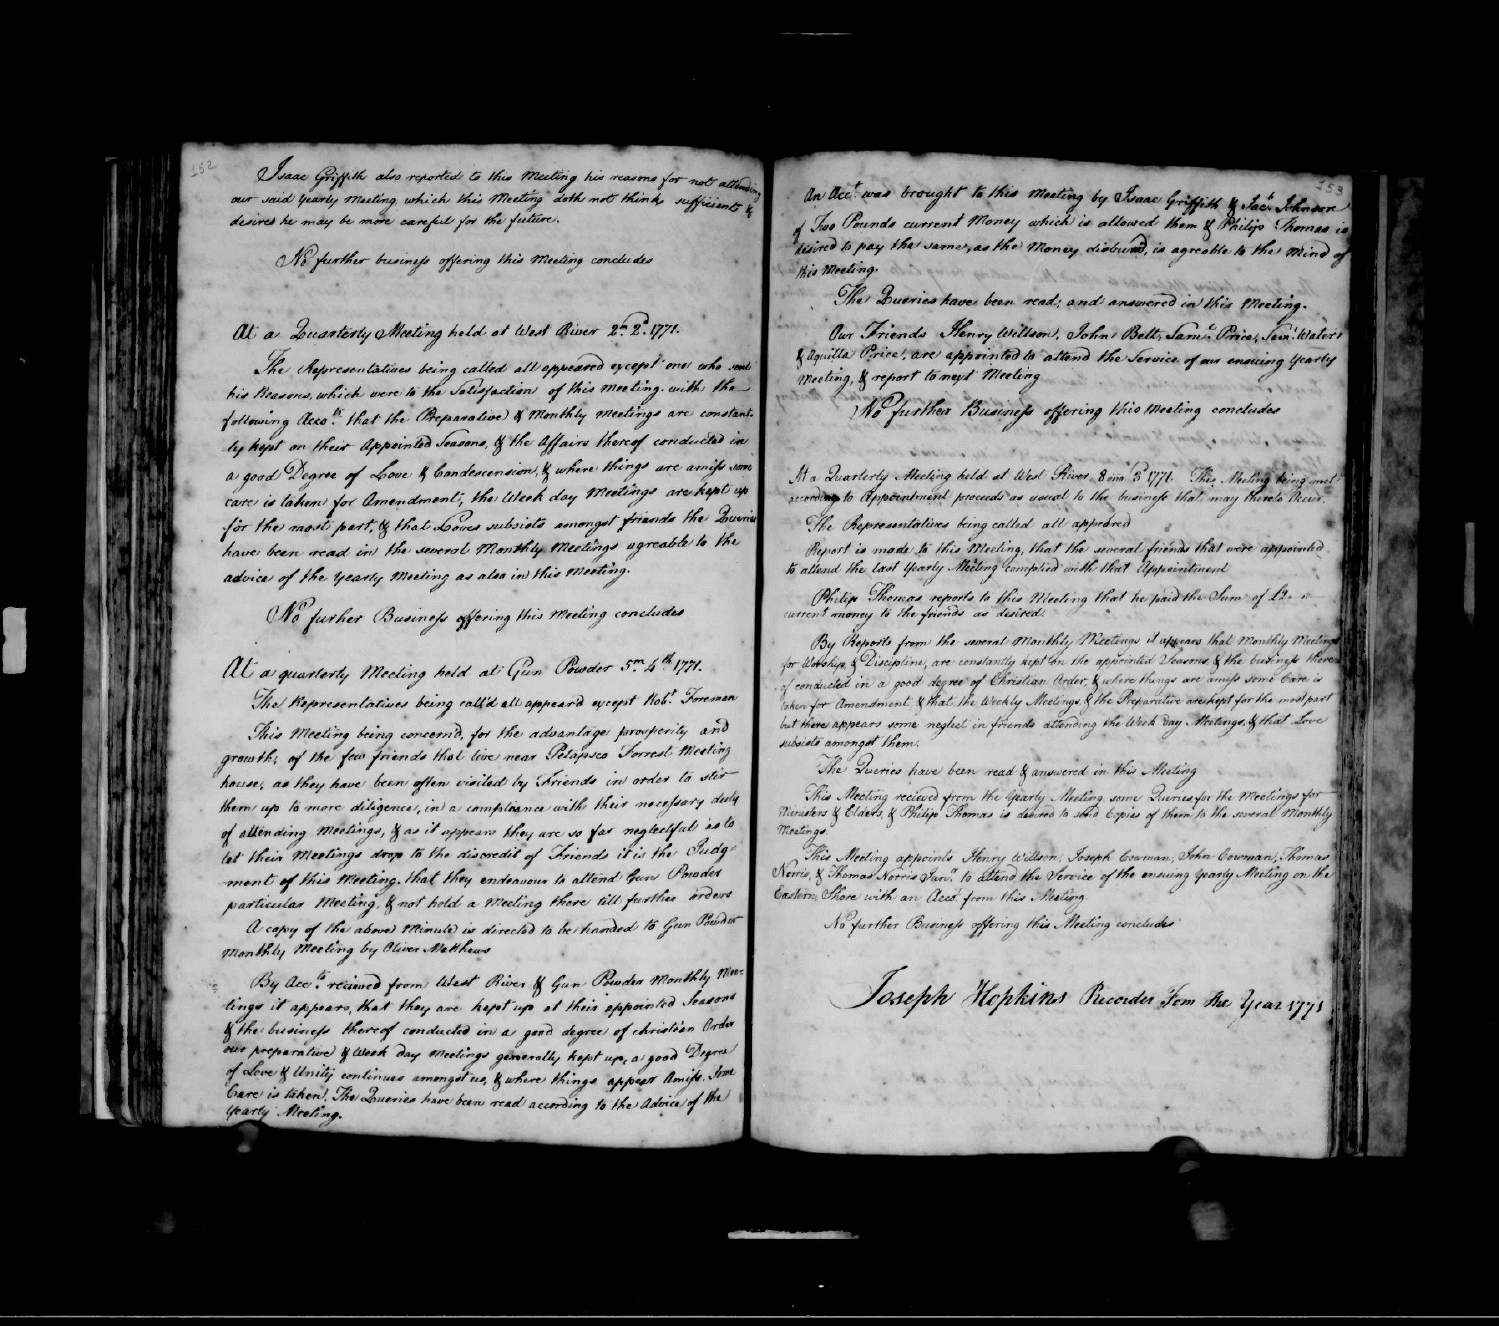 152
Isaac Griffith also reported to this Meeting his reasons for not attending
our said Yearly Meeting which this Meeting doth not think sufficient &
desires he may be more careful for the future.
No further business offering this Meeting concludes
At a Quarterly Meeting held at West River 2m 2d 1771.
The Representatives being called all appeared except one who sent
his Reasons, which were to the Satisfaction of this Meeting. with the
following Accots. that the Preparative & Monthly Meetings are constant-
ly kept on their Appointed Seasons, & the Affairs thereof conducted in
a good Degree of Love & Condescension, & where things are amiss some
care is taken for Amendment, the Week day Meetings are kept up
for the most part, & that Love subsists amongst friends the Queries
have been read in the several Monthly Meetings agreable to the
advice of the Yearly Meeting as also in this Meeting.
No further Business offering this Meeting concludes
At a quarterly Meeting held at Gun Powder 5m 4th 1771.
The Representatives being call'd all appeard except Robt. Foreman
This Meeting being concernd, for the advantage prosperity and
growth, of the few friends that live near Petapsco Forrest Meeting
house, as they have been often visited by Friends in order to stir
them up to more diligence, in a compleance with their necessary duty
of attending Meetings, & as it appears they are so far neglectful as to
let their Meetings drop to the discredit of Friends it is the Judg=
ment of this Meeting. that they endeavour to attend Gun Powder
particular Meeting, & not hold a Meeting there till further orders
A copy of the above Minute is directed to be handed to Gun Powder
Monthly Meeting by Oliver Matthews
By Accts. recieved from West River & Gun Powder Monthly Mee=
tings it appears, that they are kept up at their appointed Seasons
& the business thereof conducted in a good degree of christian Order
our preparative & Week day Meetings generally kept up, a good Degree
of Love & Unity continues amongst us, & where things appear Amiss. Some
Care is taken. The Queries have been read according to the Advice of the
Yearly Meeting.
153
An Acct. was brought to this Meeting by Isaac Griffith & Jacb. Johnson
of Two Pounds current Money which is allowed them & Philip Thomas is
desired to pay the same, as the Money disbursd, is agreable to the Mind of
this Meeting.
The Queries have been read, and answered in this Meeting.
Our Friends Henry Willson, John Belt, Saml. Price, Saml. Waters
& Aquilla Price, are appointed to attend the Service of our ensuing Yearly
Meeting, & report to next Meeting
No further Business offering this Meeting concludes
At a Quarterly Meeting held at West River 8 mo 3d 1771. This Meeting being met
according to Appointment proceeds as usual to the business that may thereto Accur.
The Representatives being called all appeared
Report is made to this Meeting, that the several friends that were appointed
to attend the last Yearly Meeting complied with that Appointment
Philip Thomas reports to this Meeting that he paid the Sum of £2
current money to the friends as desired.
By Reports from the several Monthly Meetings it appears that Monthly Meetings
for Worship, & Discipline, are constantly kept on the appointed Seasons, & the business there=
of conducted in a good degree of Christian Order, & where things are amiss some Care is
taken for Amendment, & that the Weekly Meetings, & the Preparative are kept for the most part
but there appears some neglect in friends attending the Week day Meetings, & that Love
subsists amongst them.
The Queries have been read & answered in this Meeting
This Meeting recieved from the Yearly Meeting some Queries for the Meetings for
Ministers & Elders, & Philip Thomas is desired to send Copies of them to the several Monthly
Meetings.
This Meeting appoints Henry Willson, Joseph Cowman, John Cowman, Thomas
Norris, & Thomas Norris Junr. to attend the Service of the ensuing Yearly Meeting on the
Eastern Shore with an Acct. from this Meeting
No further Business offering this Meeting concludes
Joseph Hopkins Recorder From the Year 1771